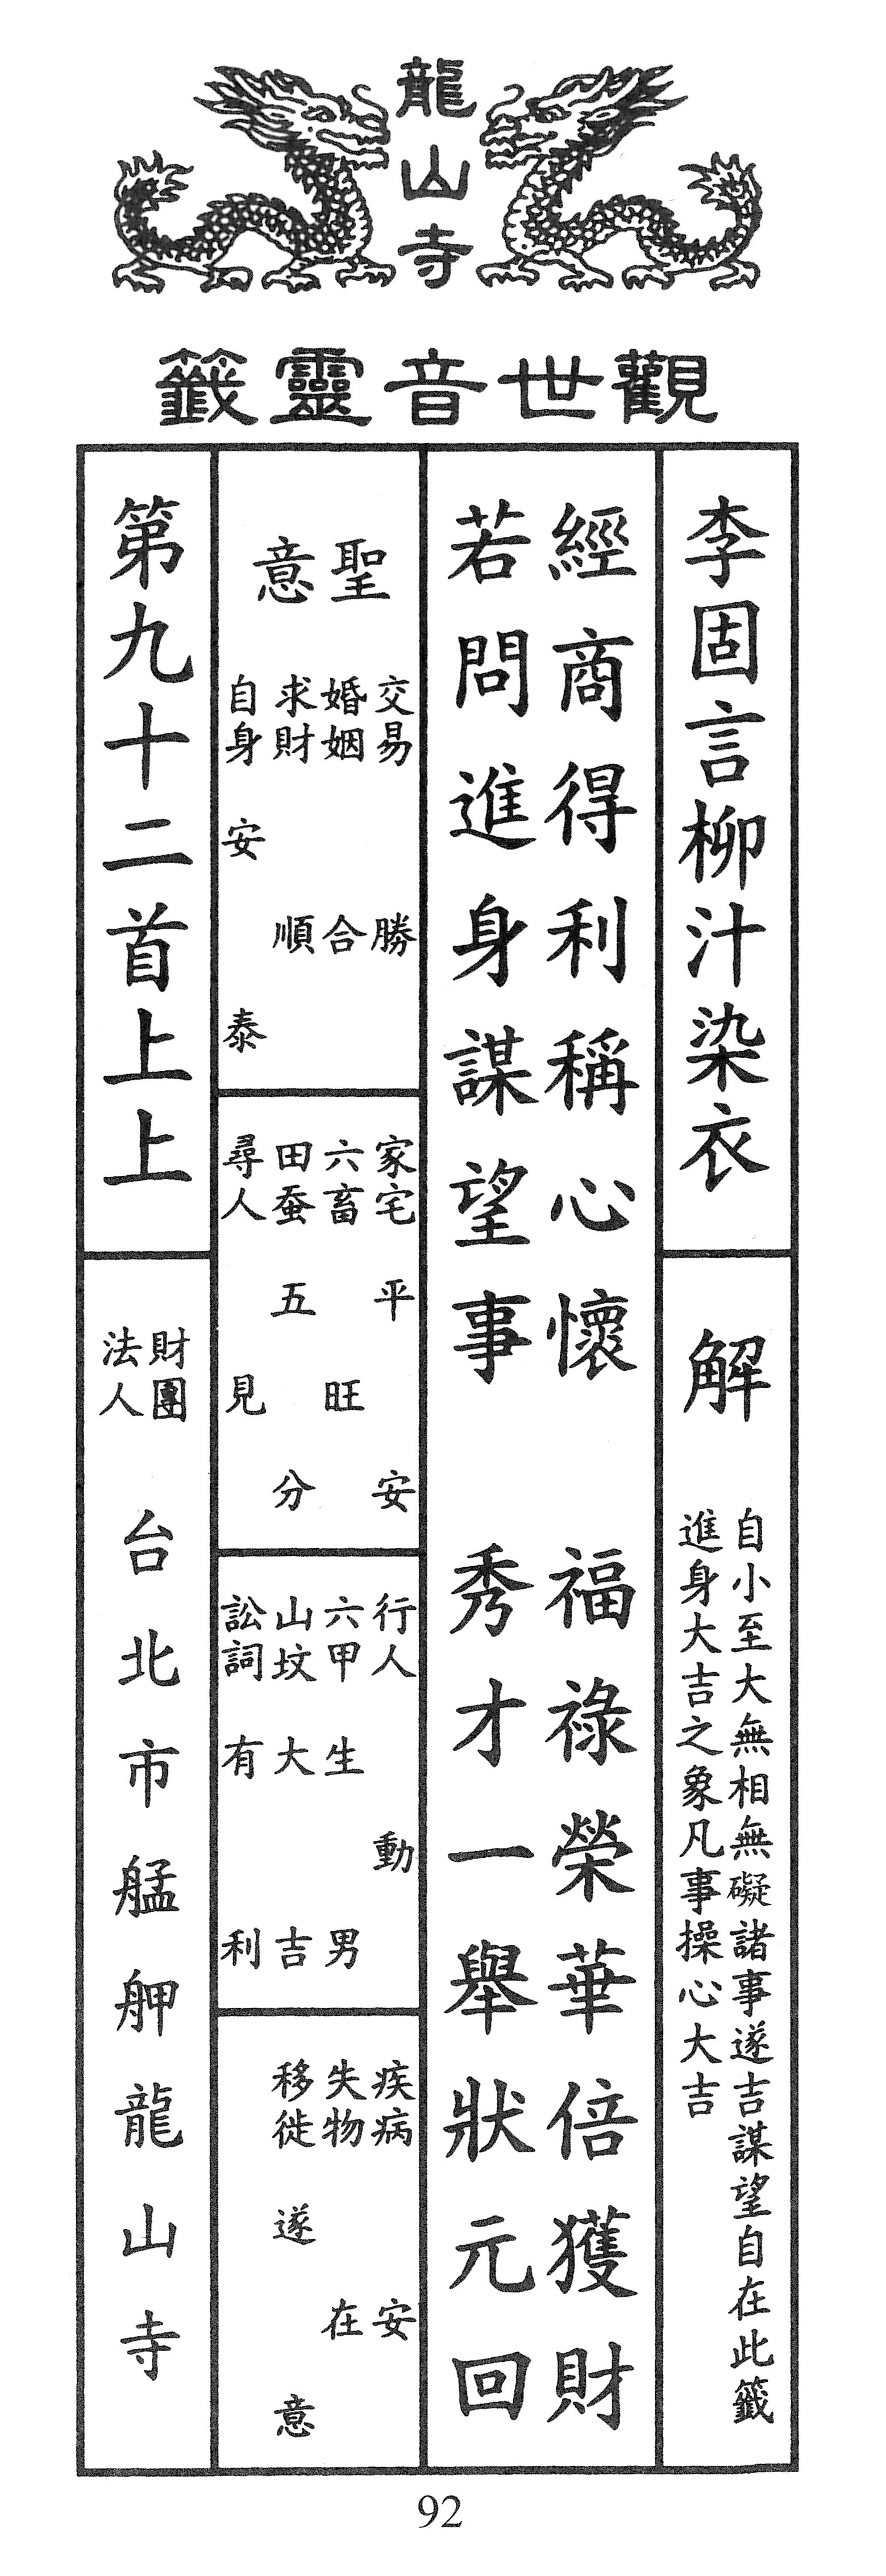 龍山寺
觀世音靈籤
李固言柳汁染衣
解
自小至大無相無礙諸事遂吉謀望自在此籤
進身大吉之象凡事操心大吉
經商得利稱心懷 福祿榮華倍獲財
若問進身謀望事 秀才一舉狀元回
聖意
交易 勝
婚姻 合
求財 順
自身 安泰
家宅 平安
六畜 旺
田蚕 五分
尋人 見
行人 動
六甲 生男
山坟 大吉
訟詞 有利
疾病 安
失物 在
移徙 遂意
第九十二首上上
財團法人 台北市艋舺龍山寺
92